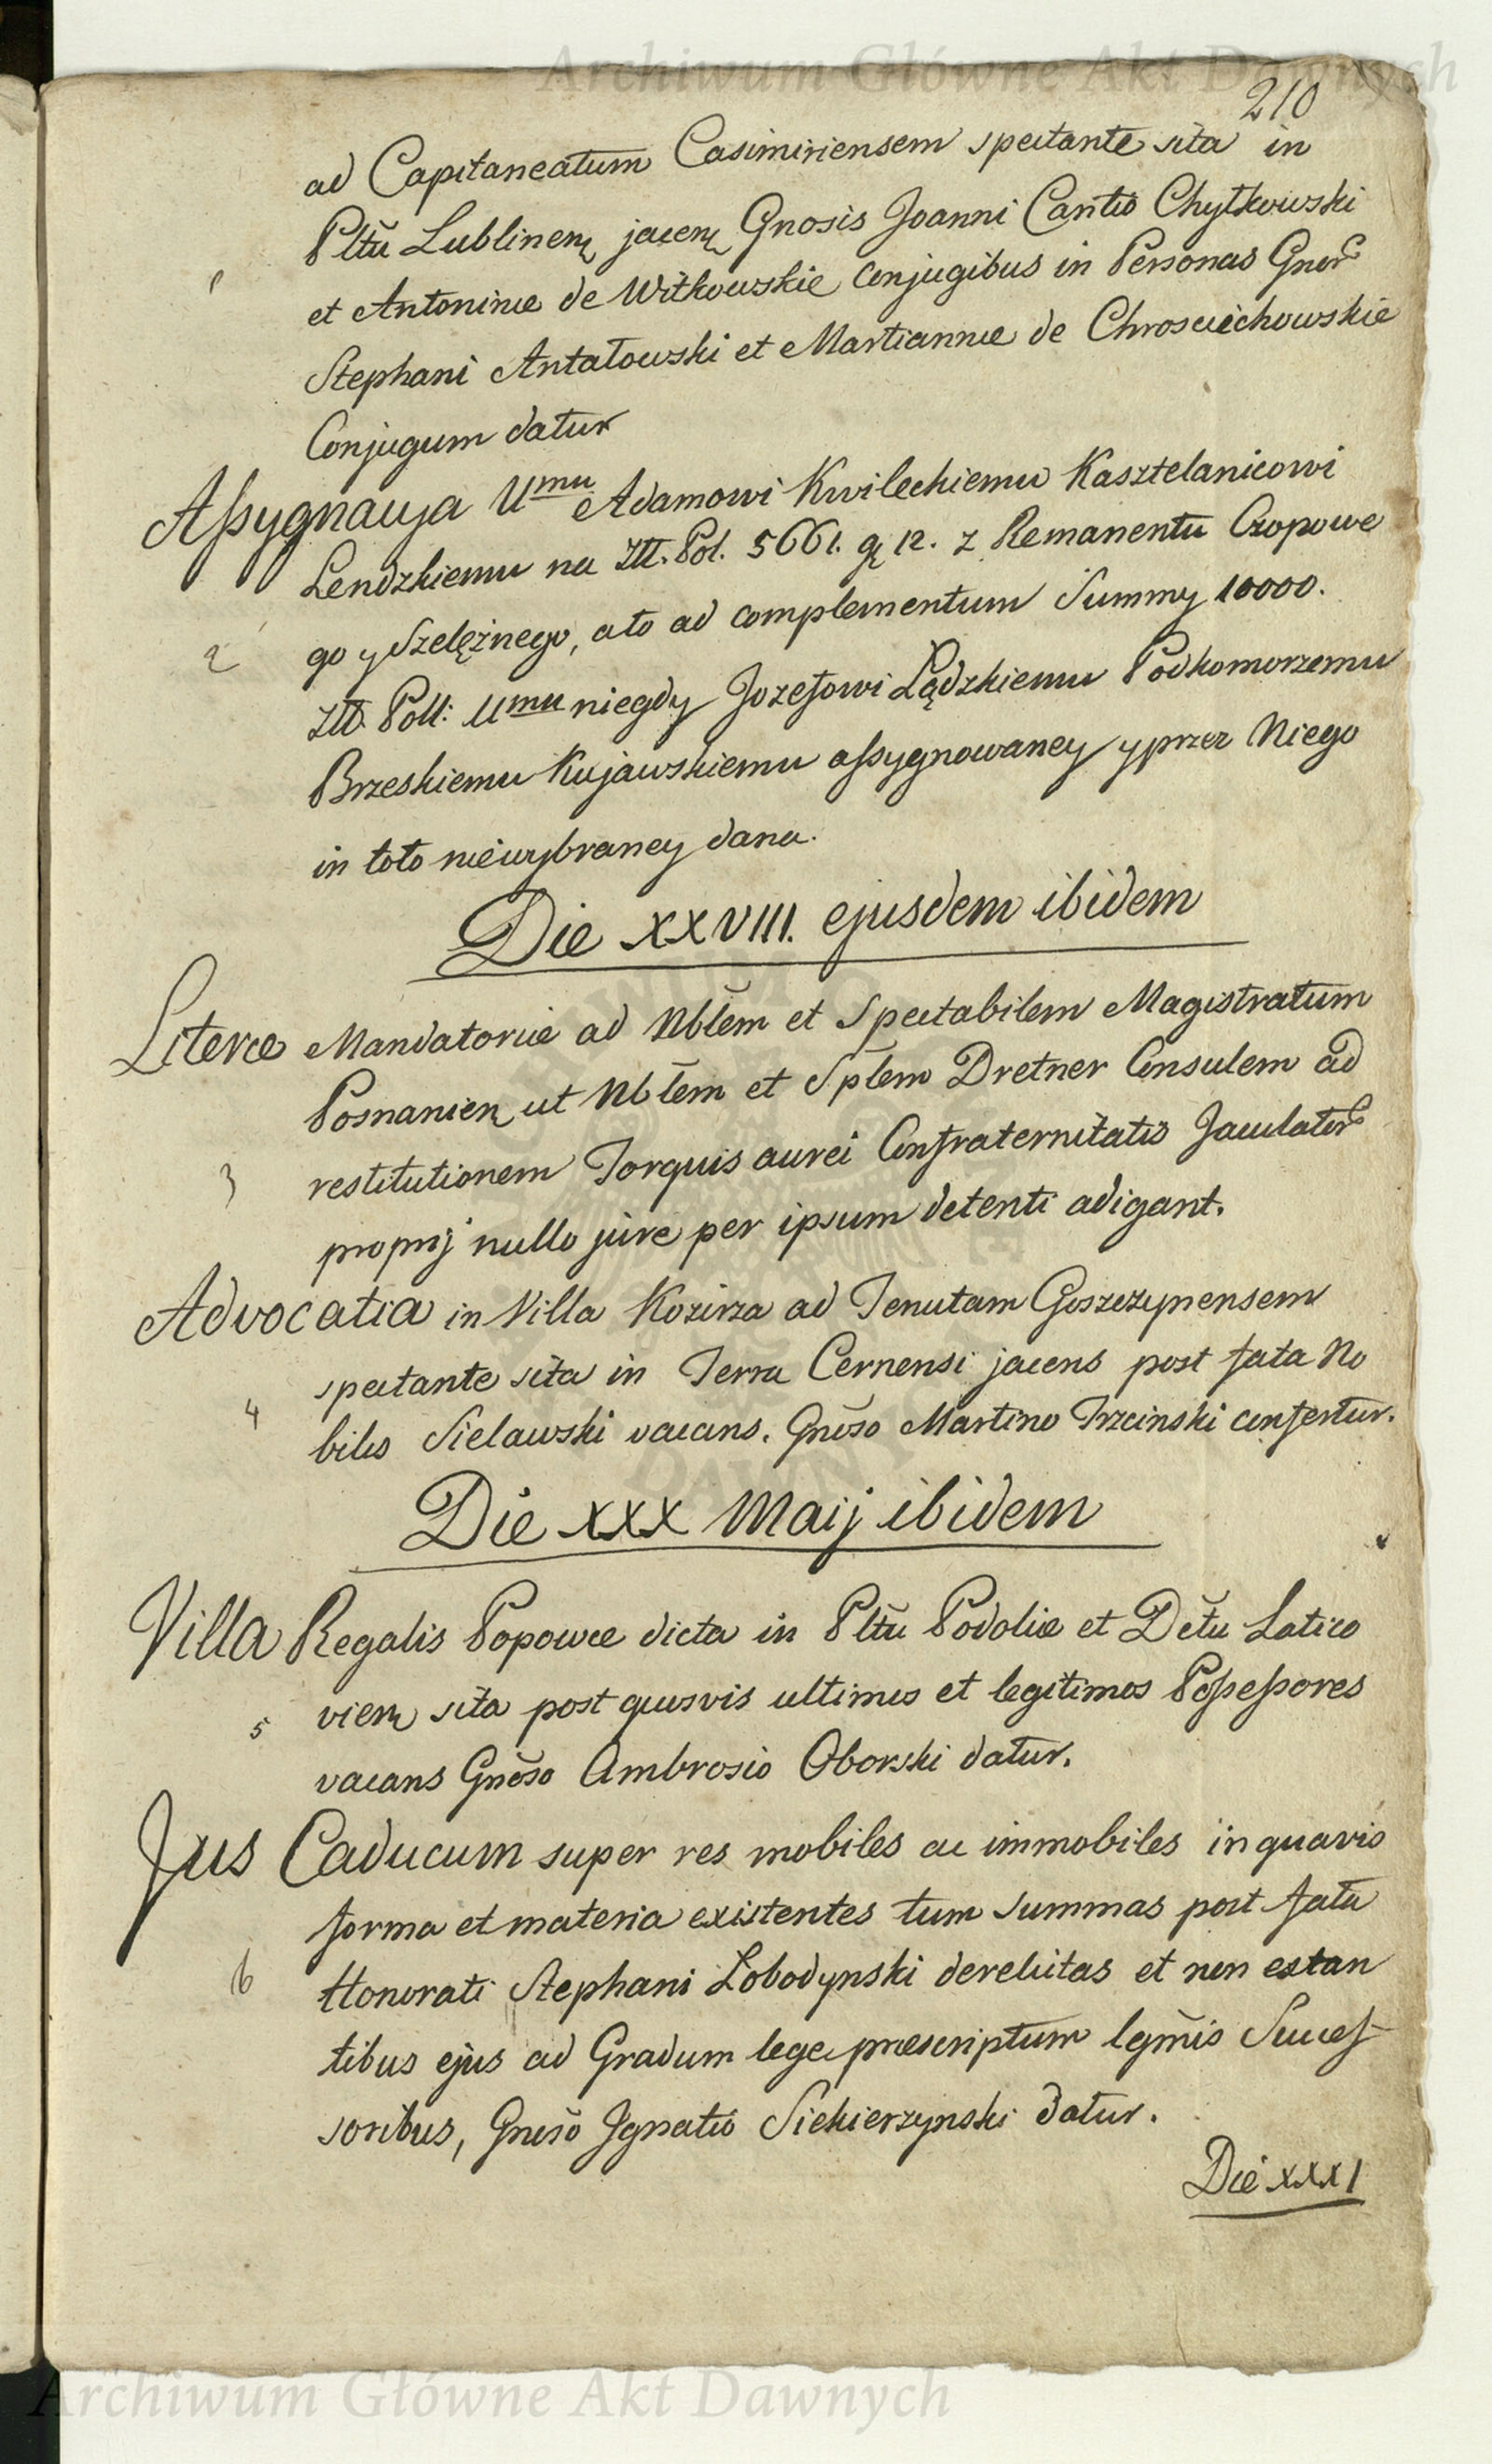 Archiwum Główne Akt Dawnych
210
ad Capitaneatum Casimiriensem spectante sita in
Pltu Lublinen jacen Gnosis Joanni Cantio Chylkowski
1 et Antoninæ de Witkowskie Conjugibus in Personas Gnor
Stephani Antałowski et Martiannæ de Chrosciechowskie
Conjugum datur
Assygnacya Umu Adamowi Kwileckiemu Kasztelanicowi
Lendzkiemu na Złł. Pol. 5661. gr 12. z Remanentu Czopowe
2 go y Szelężnego, a to ad complementum Summy 10000.
Złł. Poll: Umu niegdy Jozefowi Lądzkiemu Podkomorzemu
Brzeskiemu Kujawskiemu assygnowaney y przez Niego
in toto niewybraney dana.
Die XXVIII. ejusdem ibidem
Literæ Mandatoriæ ad Nblem et Spectabilem Magistratum
Posnanien ut Nblem et Splem Dretner Consulem ad
3 restitutionem Torquis aurei Confraternitatis Jaculator
proprij nullo jure per ipsum detenti adigant.
Advocatia in Villa Kozirza ad Tenutam Goszczynensem
spectante sita in Terra Cernensi jacens post fata No
4 bilis Sielawski vacans. Gnoso Martino Trzcinski confertur.
Die XXX Maij ibidem
Villa Regalis Popowce dicta in Pltu Podoliæ et Dctu Latico
5 vien sita post quosvis ultimos et legitimos Possessores
vacans Gnoso Ambrosio Oborski datur.
Jus Caducum super res mobiles ac immobiles in quavis
forma et materia existentes tum summas post fata
6 Honorati Stephani Lobodynski derelictas et non extan
tibus ejus ad Gradum lege præscriptum lgmis Succes
soribus, Gnoso Ignatio Siekierzynski datur.
Die XXXI
Archiwum Główne Akt Dawnych